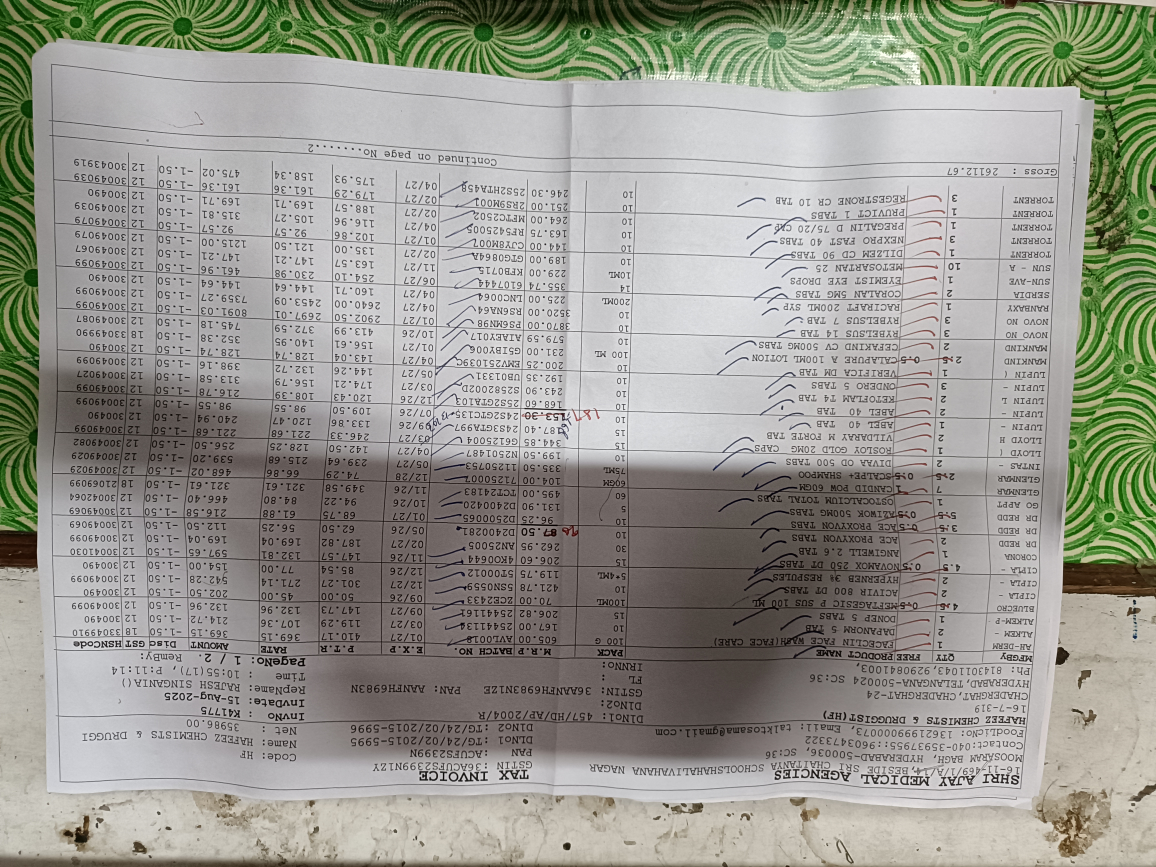 TAX INVOICE
SHRI AJAY MEDICAL AGENCIES
16-11-469/1/A/1/A,14,BESIDE SRI CHAITANYA SCHOOLSHAHLIVAHANA NAGAR
MOOSARAM BAGH, HYDERABAD-500036, SC:36
Contact:040-35937955::8603473322
FoodLicNo: 13621999000073, Email: talktosama@gmail.com
GSTIN :36ACUFS2399N1ZY
PAN :ACUFS2399N
DLNO1 :TG/24/02/2015-5995
DLNO2 :TG/24/02/2015-5996
Code: HF
Name: HAFEEZ CHEMISTS & DRUGGI
Net : 35986.00
HAFEEZ CHEMISTS & DRUGGIST(HF)
16-7-319
CHADERGHAT, CHADERGHAT-24
HYDERABAD, TELANGANA-500024 SC:36
Ph: 8143011043,9290841003,
DLNO1: 457/HD/AP/2004/R
DLNO2:
GSTIN: 36AANFH6983N1ZE PAN: AANFH6983N
FL :
IRNNO:
InvNo : K41775
InvDate: 15-Aug-2025
RepName: RAJESH SINGANIA()
Time : 10:55(17), P:11:14
PageNo: 1 / 2. RemBy:
MFGBY QTY FREE PRODUCT NAME PACK M.R.P BATCH NO. E.X.P P.T.R RATE AMOUNT Disc GST HSNCode
AR-DERM 1 FACECLIN FACE WASH(FACE CARE) 100 G 605.00 AVL0018 01/27 410.17 369.15 369.15 -1.50 18 33049910
ALKEM 2 DAPANORM 5 TAB 10 167.00 25441134 03/27 119.29 107.36 214.72 -1.50 12
ALKEM-P 1 DONEP 5 TABS 15 206.82 25441161 09/27 147.73 132.96 132.96 -1.50 12 30049099
BLUECRO 4.5 0.5 MEFTAGESIC P SUS 100 ML 100ML 70.00 2CE2433 09/26 50.00 45.00 202.50 -1.50 12 300490
CIPLA - 2 ACIVIR 800 DT TABS 10 421.78 SN50559 12/27 301.27 271.14 542.28 -1.50 12 30049099
CIPLA - 2 HYPERNEB 3% RESPULES 5*4ML 119.75 ST00712 12/26 85.54 77.00 154.00 -1.50 12 300490
CIPLA - 4.5 0.5 NOVAMOX 250 DT TABS 15 206.60 4KO0644 11/26 147.57 132.81 597.65 -1.50 12 30041030
CORONA 1 ANGIWELL 2.6 TAB 30 262.95 ANE5005 02/27 187.82 169.04 169.04 -1.50 12 30049099
DR REDD 2 ACE PROXYVON TABS 10 87.50 D2400281 05/26 62.50 56.25 112.50 -1.50 12 30049069
DR REDD 3.5 0.5 ACE PROXYVON TABS 10 96.25 D2500065 01/27 68.75 61.88 216.58 -1.50 12 30049069
DR REDD 5.5 0.5 AZINOK 500MG TABS 5 131.90 D2400420 10/26 94.22 84.80 466.40 -1.50 12 30042064
GO APPT 1 OSTOCALCIUM TOTAL TABS 60 495.00 TCT24183 11/26 349.58 321.61 321.61 -1.50 18 21069099
GLENMAR 7 CANDID POW 60GM 60GM 104.00 11250007 12/28 74.29 66.86 468.02 -1.50 12 30049029
GLENMAR 2.5 0.5 SCALPE+ SHAMPOO 75ML 335.50 11250753 05/27 239.64 215.68 539.20 -1.50 12 30049029
INTAS - 2 DIVAA OD 500 TABS 10 199.50 N2501487 04/27 142.50 128.25 256.50 -1.50 12 30049082
LLOYD ( 1 VILDARAY M FORTE TAB 15 344.85 GG125004 03/27 246.33 221.68 221.68 -1.50 12 30049099
LLOYD H 2 ROSTOY GOLD 20MG CAPS 15 187.40 2433GTC997 09/26 133.86 120.47 240.94 -1.50 12 300490
LUPIN - 1 ABEL 40 TAB 10 153.30 2432GTC135 07/26 109.50 98.55 98.55 -1.50 12 30049099
LUPIN - 2 ABEL 40 TAB 10 168.60 2532GTA103 12/26 120.43 108.39 216.78 -1.50 12
LUPIN L 2 KETOFLAM T4 TAB 10 243.90 S2582002 03/27 174.21 156.79 313.58 -1.50 12
LUPIN - 3 ONDERO 5 TABS 10 192.35 UB01331 05/27 144.26 132.72 398.16 -1.50 12
LUPIN ( 1 VERIFICA DM TAB 10 200.25 04/27 143.04 128.74 128.74 -1.50 12
MANKIND 2.5 0.5 CALAPURE A 100ML LOTION 100 ML 231.00 G5IBY006 01/27 156.61 140.95 352.38 -1.50 18 33049990
MANKIND 2 CEFAKIND CV 500MG TABS 10 579.59 A1AEY017 10/26 413.99 372.59 745.18 -1.50 12
NOVO NO 3 RYBELSUS 14 TAB 10 3870.00 RS6UM98 01/27 2902.50 2697.01 8091.03 -1.50 12
NOVO NO 3 RYBELSUS 7 TAB 10 3520.00 RS6NA64 04/27 2640.00 2453.09 7359.27 -1.50 12 30049099
RANBAXY 1 RACIRAFT 200ML SYP 200ML 225.00 LNC0064 04/27 160.71 144.64 144.64 -1.50 12 300490
SERDIA 2 CORALAN 5MG TABS 14 355.74 6107444 06/27 254.10 230.98 461.96 -1.50 12 30049099
SUN-AVE 1 EYEMIST EYE DROPS 10ML 229.00 KFB0715 11/26 163.57 147.21 147.21 -1.50 12 30049067
SUN - A 10 METOSARTAN 25 10 189.00 GTO0864A 02/27 135.00 121.50 1215.00 -1.50 12 30049079
TORRENT 1 DILZEM CD 90 TABS 10 144.00 CUY8M007 01/27 102.86 92.57 92.57 -1.50 12 30049079
TORRENT 3 NEXPRO FAST 40 TABS 10 163.75 RF5425005 04/27 116.96 105.27 315.81 -1.50 12 30049039
TORRENT 1 PREGALIN D 75/20 CAP 10 264.00 MPTC2502 02/27 188.57 169.71 169.71 -1.50 12 300490
TORRENT 1 PRUVICT 1 TABS 10 251.00 2R3SM001 02/27 179.29 161.36 161.36 -1.50 12 30049039
TORRENT 3 REGESTRONE CR 10 TAB 10 246.30 2552HTA458 04/27 175.93 158.34 475.02 -1.50 12 30043919
Gross : 26112.67
Continued on page No.......2